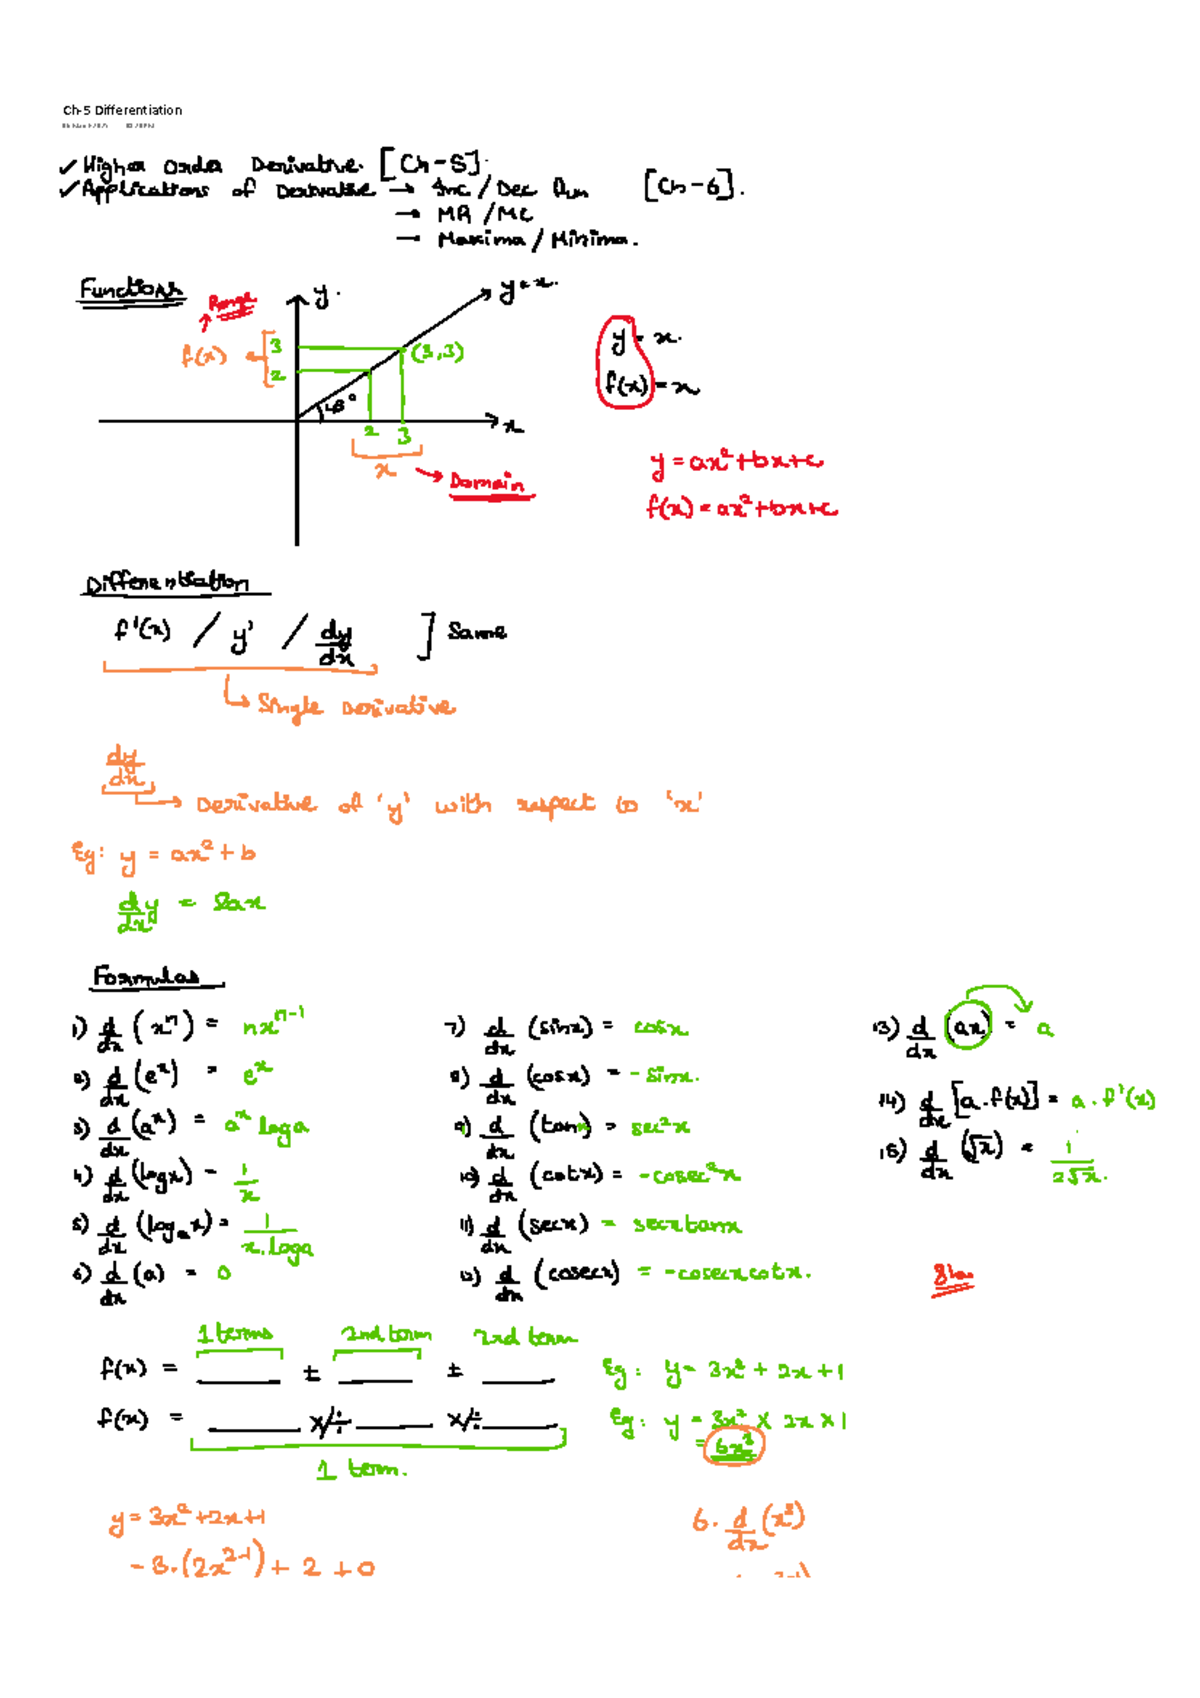 Ch-5 Differentiation
✓ Higher Order Derivative. [Ch-5].
✓ Applications of Derivative → Inc / Dec fun [Ch-6].
→ MR / MC
→ Maxima / Minima.
Functions
Range
y.
y=x.
f(x)
3
2
(3,3)
45°
2 3
x
x
Domain
y = x.
f(x) = x
y = ax²+bx+c
f(x) = ax²+bx+c
Differentiation
f'(x) / y' / dy/dx ] Same
Single Derivative
dy/dx
→ Derivative of 'y' with respect to 'x'
Eg: y = ax²+b
d/dx y = 2ax
Formulas
1) d/dx (xⁿ) = nxⁿ⁻¹
2) d/dx (eˣ) = eˣ
3) d/dx (aˣ) = aˣ log a
4) d/dx (logx) = 1/x
5) d/dx (logₐx) = 1/x.loga
6) d/dx (a) = 0
7) d/dx (sinx) = cosx
8) d/dx (cosx) = -sinx.
9) d/dx (tanx) = sec²x
10) d/dx (cotx) = -cosec²x
11) d/dx (secx) = secxtanx
12) d/dx (cosecx) = -cosecxcotx.
13) d/dx (ax) = a
14) d/dx [a.f(x)] = a.f'(x)
15) d/dx (√x) = 1/2√x.
1 terms 2nd term 2nd term
f(x) = ____ ± ____ ± ____
Eg: y = 3x² + 2x + 1
f(x) = ____ x/÷ ____ x/÷ ____
1 term.
Eg: y = 3x² x 2x x 1
= 6x³
y = 3x²+2x+1
- 3.(2x²⁻¹) + 2 + 0
6. d/dx (x³)